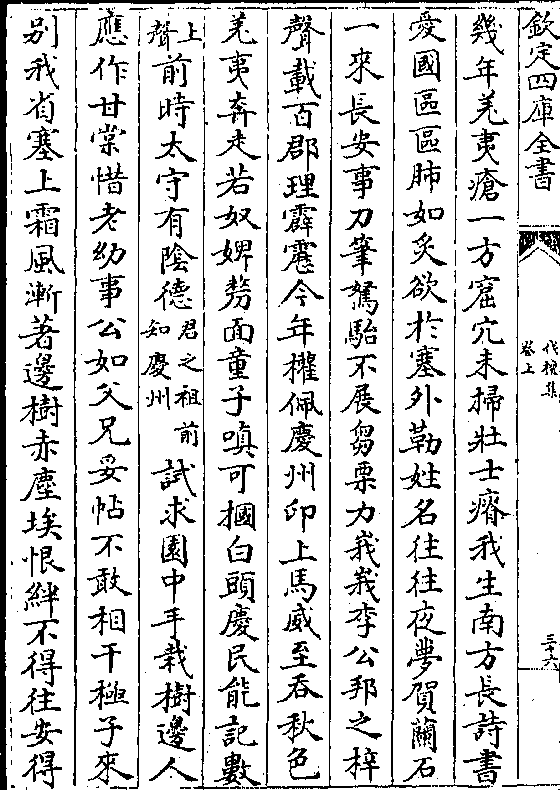 欽定四庫全書
伐檀集 卷上
三十六
幾年羌夷瘡一方窟穴未掃壯士瘠我生南方長詩書
愛國區區肺如炙欲於塞外勒姓名往往夜夢賀蘭石
一來長安事刀筆駑駘不展芻栗力峩峩李公邦之梓
聲載百郡理霹靂今年櫂佩慶州印上馬威至吞秋色
羌夷奔走若奴婢剺面童子嗔可摑白頭慶民能記數
上聲前時太守有陰德君之祖前知慶州試求園中手栽樹邊人
應作甘棠惜老幼事公如父兄妥帖不敢相干極子來
别我省塞上霜風漸著邊樹赤塵埃恨絆不得往安得